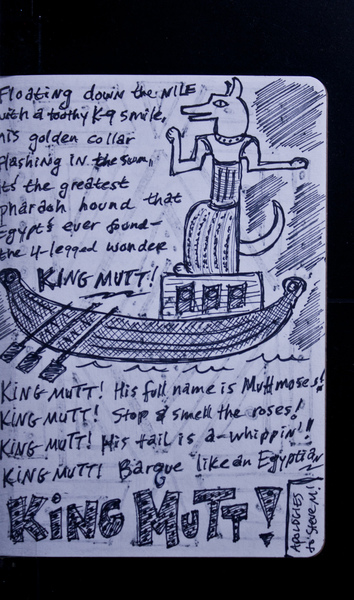 Floating down the NILE
with a toothy K-9 smile,
his golden collar
flashing IN the sun,
its the greatest
pharaoh hound that
Egypt's ever found—
the 4-legged wonder
KING MUTT!
KING MUTT! His full name is Muttmoses!
KING MUTT! Stop & smell the roses!
KING MUTT! His tail is a-whippin'!
KING MUTT! Barque like an Egyptian
KING MUTT!
APOLOGIES
to STEVE M.!